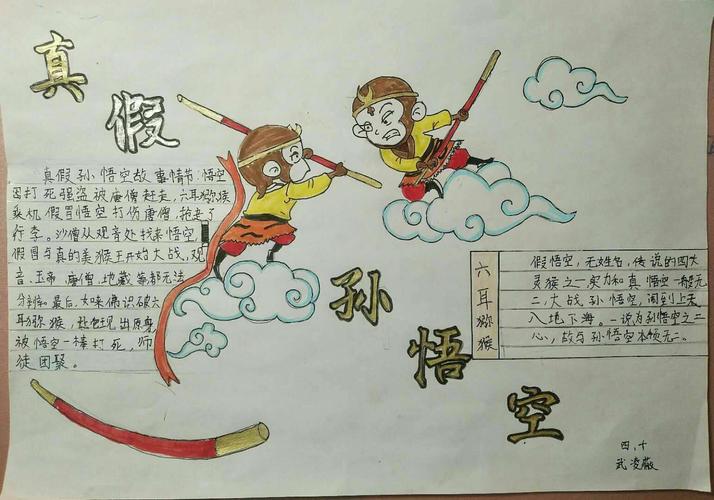 真假
真假孙悟空故事情节:悟空
因打死强盗被唐僧赶走,六耳猕猴
乘机假冒悟空打伤唐僧,抢走了
行李。沙僧从观音处找来悟空,
假冒与真的美猴王开始大战,观
音、玉帝、唐僧、地藏等都无法
分辨。最后,如来佛识破六
耳猕猴,出原身
被悟空一棒打死,师
徒团聚。
孙悟空
六耳猕猴
假悟空,无姓名,传说的四大
灵猴之一实力和真悟空一般无
二,大战孙悟空,闹到上天
入地下海。一说为孙悟空之二
心,故与孙悟空本领无二。
四,十
武凌薇